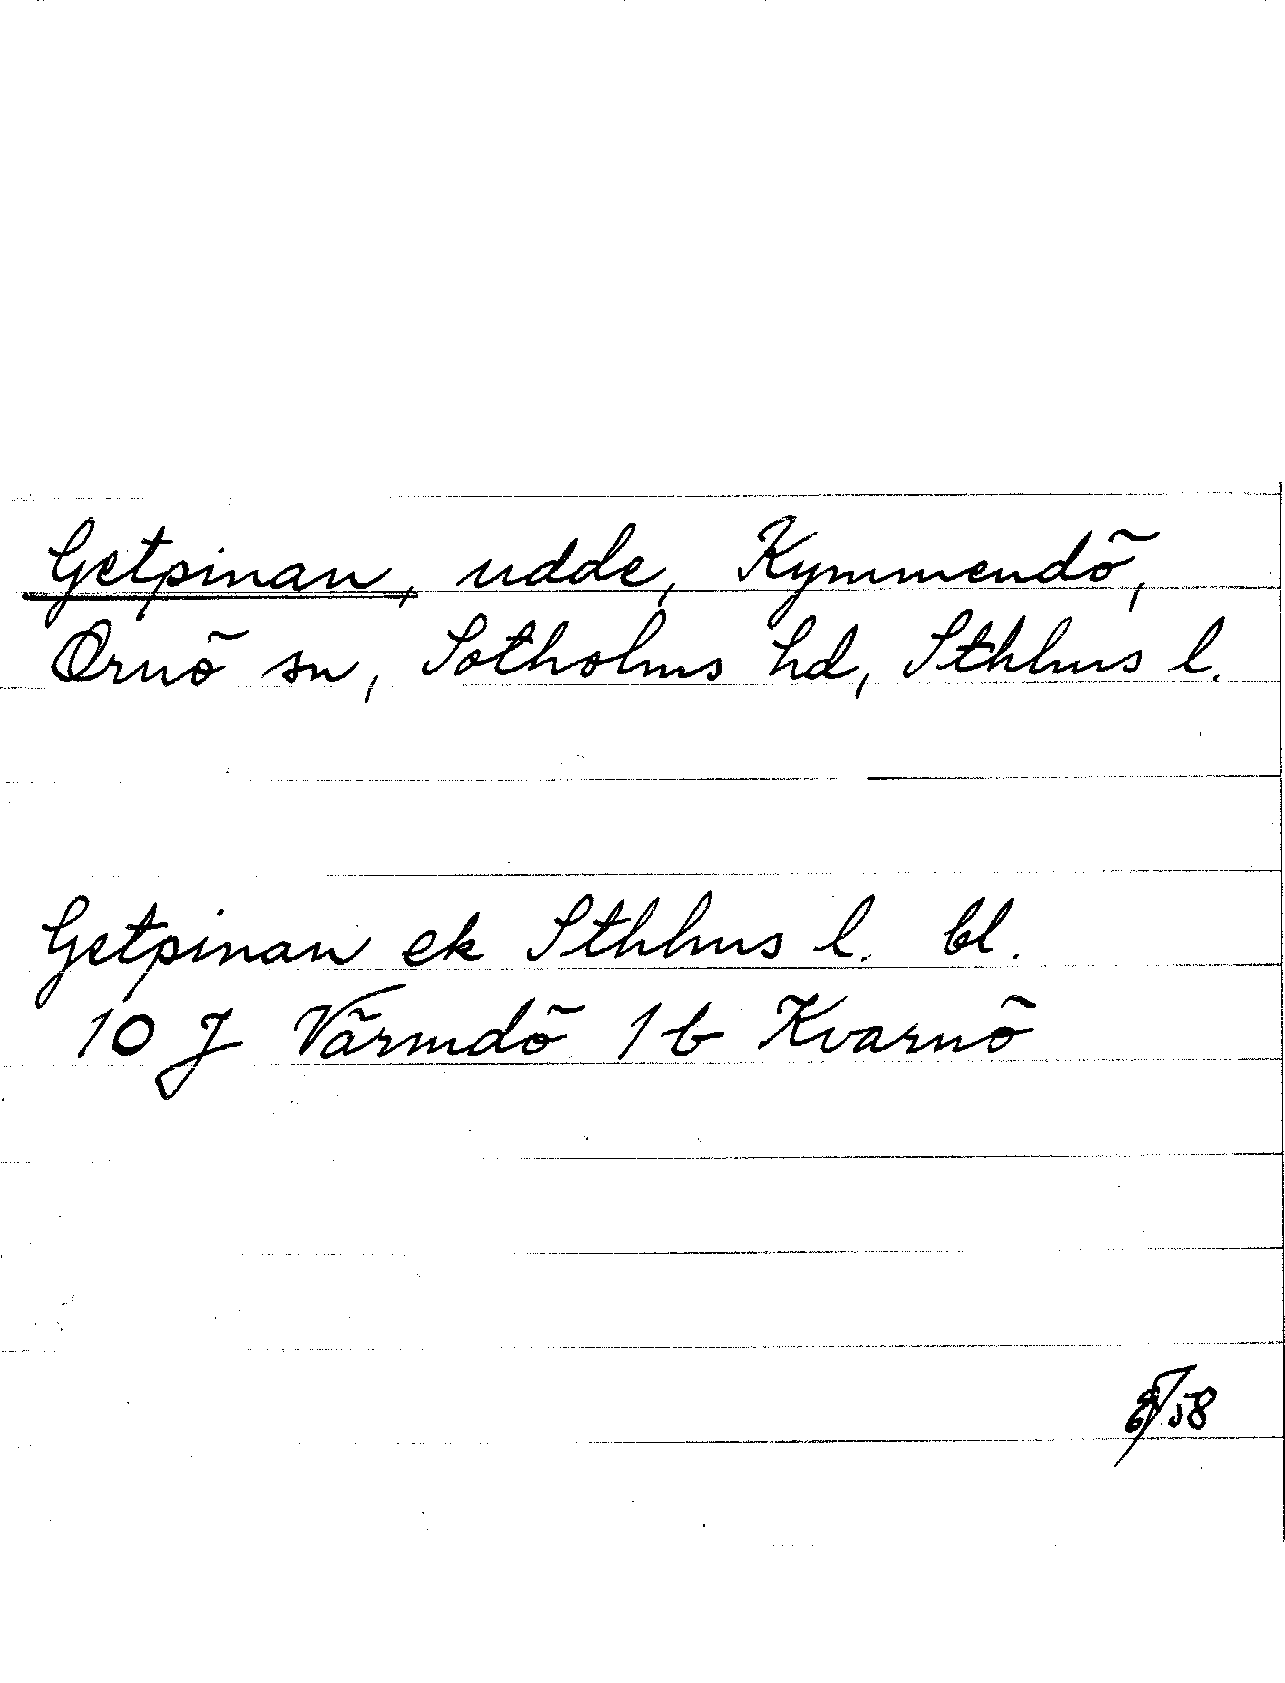 Getpinan, udde, Kymmendö,
Ornö sn, Sotholms hd, Sthlms l.
Getpinan ek Sthlms l. bl.
10 J Värmdö 1 b Kvarnö
58